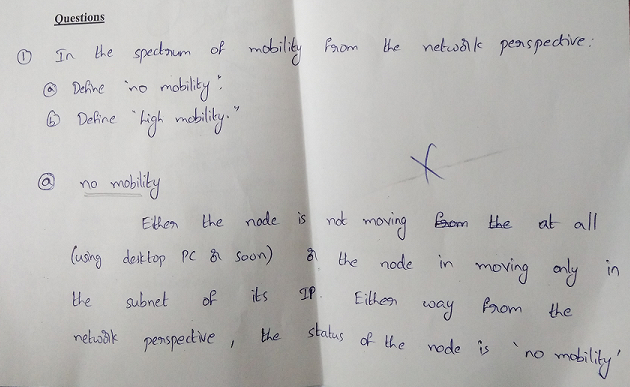 Questions
① In the spectrum of mobility from the network perspective:
ⓐ Define "no mobility".
ⓑ Define "high mobility."
ⓐ no mobility
Either the node is not moving from the at all
(using desktop PC or soon) or the node in moving only in
the subnet of its IP. Either way from the
network perspective, the status of the node is 'no mobility'